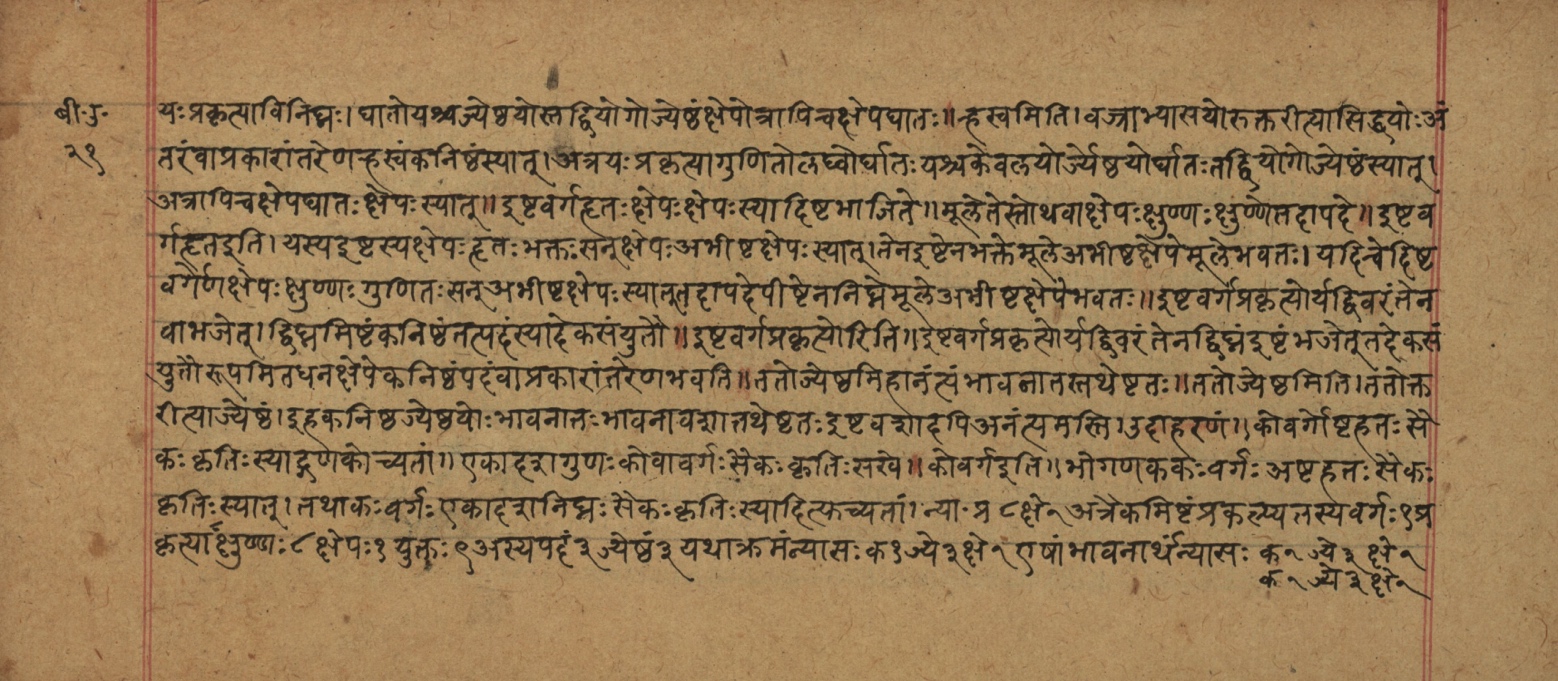 बी॰उ॰
२१
यः प्रकृत्याविनिघ्नः। घातोयश्चज्येष्ठयोस्तद्वियोगोज्येष्ठंक्षेपोत्रापिचक्षेपघातः॥ ऱ्हस्वमिति। वज्राभ्यासयोरुक्तरीत्यासिद्धयोःअं
तरंवाप्रकारांतरेणऱ्हस्वंकनिष्ठंस्यात्। अत्रयः प्रकृत्यागुणितोलघ्वोर्घातः यश्चकेवलयोर्ज्येष्ठयोर्घातः तद्वियोगोज्येष्ठंस्यात्।
अत्रापिचक्षेपघातः क्षेपः स्यात्॥ इष्टवर्गहृतः क्षेपः क्षेपः स्यादिष्टभाजिते॥ मूलेतेस्तोथवाक्षेपः क्षुण्णः क्षुण्णेतदापदे॥ इष्टव
र्गहृतइति। यस्यइष्टस्यक्षेपः हृतः भक्तः सन्क्षेपः अभीष्टक्षेपः स्यात्। तेनइष्टेनभक्तेमूलेअभीष्टक्षेपेमूलेभवतः। यदिचेदिष्ट
वर्गेणक्षेपः क्षुण्णः गुणितः सन्अभीष्टक्षेपः स्यात्तदापदेपीष्टेननिघ्नेमूलेअभीष्टक्षेपेभवतः॥ इष्टवर्गप्रकृत्योर्यद्विवरंतेन
वाभजेत्। द्विघ्नमिष्टंकनिष्ठंतत्पदंस्यादेकसंयुतौ॥ इष्टवर्गप्रकृत्योरिति॥ इष्टवर्गप्रकृत्योर्यद्विवरंतेनद्विघ्नंइष्टंभजेत्तदेकसं
युतौरूपमितधनक्षेपेकनिष्ठंपदंवाप्रकारांतरेणभवति॥ ततोज्येष्ठमिहानंत्यंभावनातस्तथेष्टतः॥ ततोज्येष्ठमिति। ततोक्त
रीत्याज्येष्ठं। इहकनिष्ठज्येष्ठयोः भावनातः भावनावशात्तथेष्टतः इष्टवशादपिअनंत्यमस्ति। उदाहरणं। कोवर्गोष्टहतः सै
कः कृतिः स्याद्गणकोच्यतां॥ एकादशगुणः कोवावर्गः सैकः कृतिः सखे॥ कोवर्गइति॥ भोगणककः वर्गः अष्टहतः सैकः
कृतिः स्यात्। तथाकः वर्गः एकादशनिघ्नः सैकः कृतिः स्यादित्युच्यतां। न्या॰ प्र ८ क्षे १ अत्रैकमिष्टंप्रकल्प्यतस्यवर्गः १ प्र
कृत्या क्षुण्णः ८ क्षेपः १ युक्तः ९ अस्यपदं ३ ज्येष्ठं ३ यथाक्रमंन्यासः क १ ज्ये ३ क्षे १ एषांभावनार्थंन्यासः क १ ज्ये ३ क्षे १
क १ ज्ये ३ क्षे १